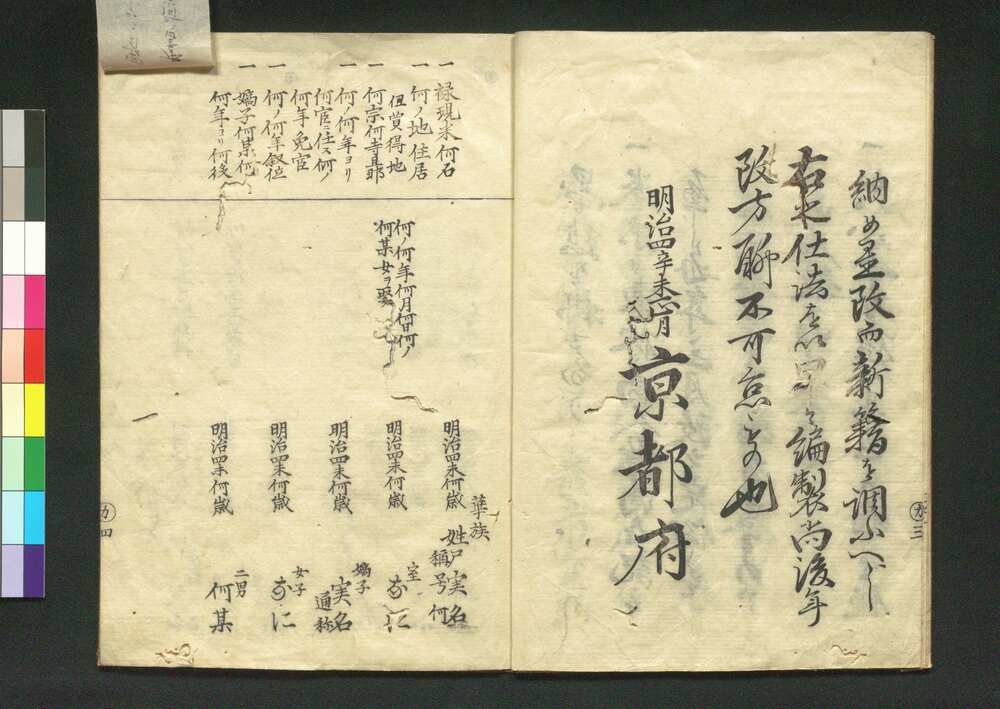 納め置改而新籍を調ふへし
右之仕法を以
編製尚後年
改方聊不可怠もの也
明治四辛未
京都府
カ三
一 禄現米何石
一 何ノ地住居
但賞得地
一 何宗何寺旦那
一 何ノ何年ヨリ
何官ニ任ス何ノ
何年免官
一 何ノ何年叙位
一 嫡子何某何
何年ヨリ何役
何ノ何年何月何日何ノ
何某女ヲ娶
華族
明治四未何歳 姓尸実名
稱号何
明治四未何歳 室 なに
明治四未何歳 嫡子 実名
通称
明治四未何歳 女子 なに
明治四未何歳 二男 何某
カ四